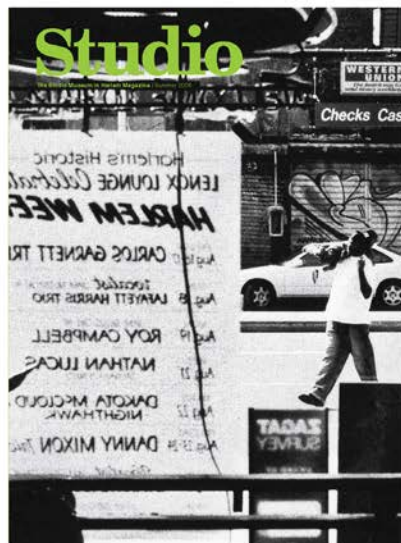 Studio
The Studio Museum in Harlem Magazine / Summer 2008
WESTERN
UNION
Checks Cas
Harlem's Historic
LENOX LOUNGE Celebrat
HARLEM WEE
Aug CARLOS GARNETT TRI
Vocalist
Aug 18 LAFAYETT HARRIS TRIO
Aug 19 ROY CAMPBELL
Aug 21 NATHAN LUCAS
Aug 22 DAKOTA McCLOUD
NIGHTHAWK
Aug 23-24 DANNY MIXON
ZAGAT
SURVEY